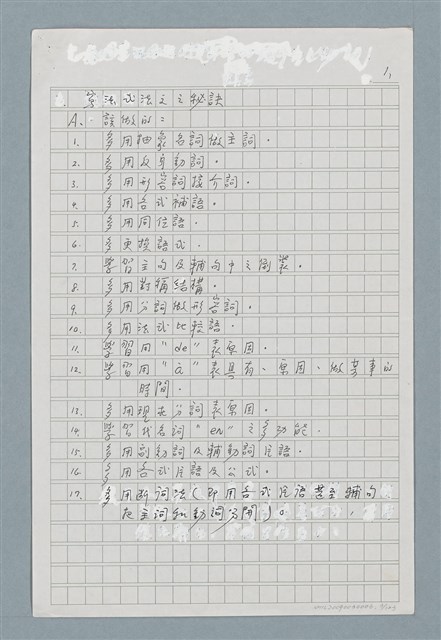 1,
寫法式法文之秘訣
A. 該做的：
1. 多用抽象名詞做主詞。
2. 多用反身動詞。
3. 多用形容詞接介詞。
4. 多用各式補語。
5. 多用同位語。
6. 多更換語式。
7. 學習主句及輔句中之倒裝。
8. 多用對稱結構。
9. 多用分詞做形容詞。
10. 多用法式比較語。
11. 學習用"de"表原因。
12. 學習用"à"表具有、原因、做某事的
時間。
13. 多用現在分詞表原因。
14. 學習代名詞"en"之多功能。
15. 多用副動詞及輔動詞片語。
16. 多用各式片語及公式。
17. 多用斷詞法（即用各式片語甚至輔句
在主詞和動詞分開）。